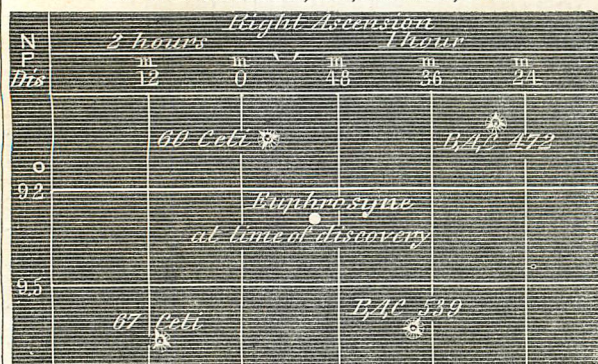 Right Ascension
2 hours 1 hour
N
P
Dis
m m m m m
12 0 48 36 24
60 Ceti
B,A,C 472
o
92
Euphrosyne
at time of discovery
95
67 Ceti
B,A,C 539